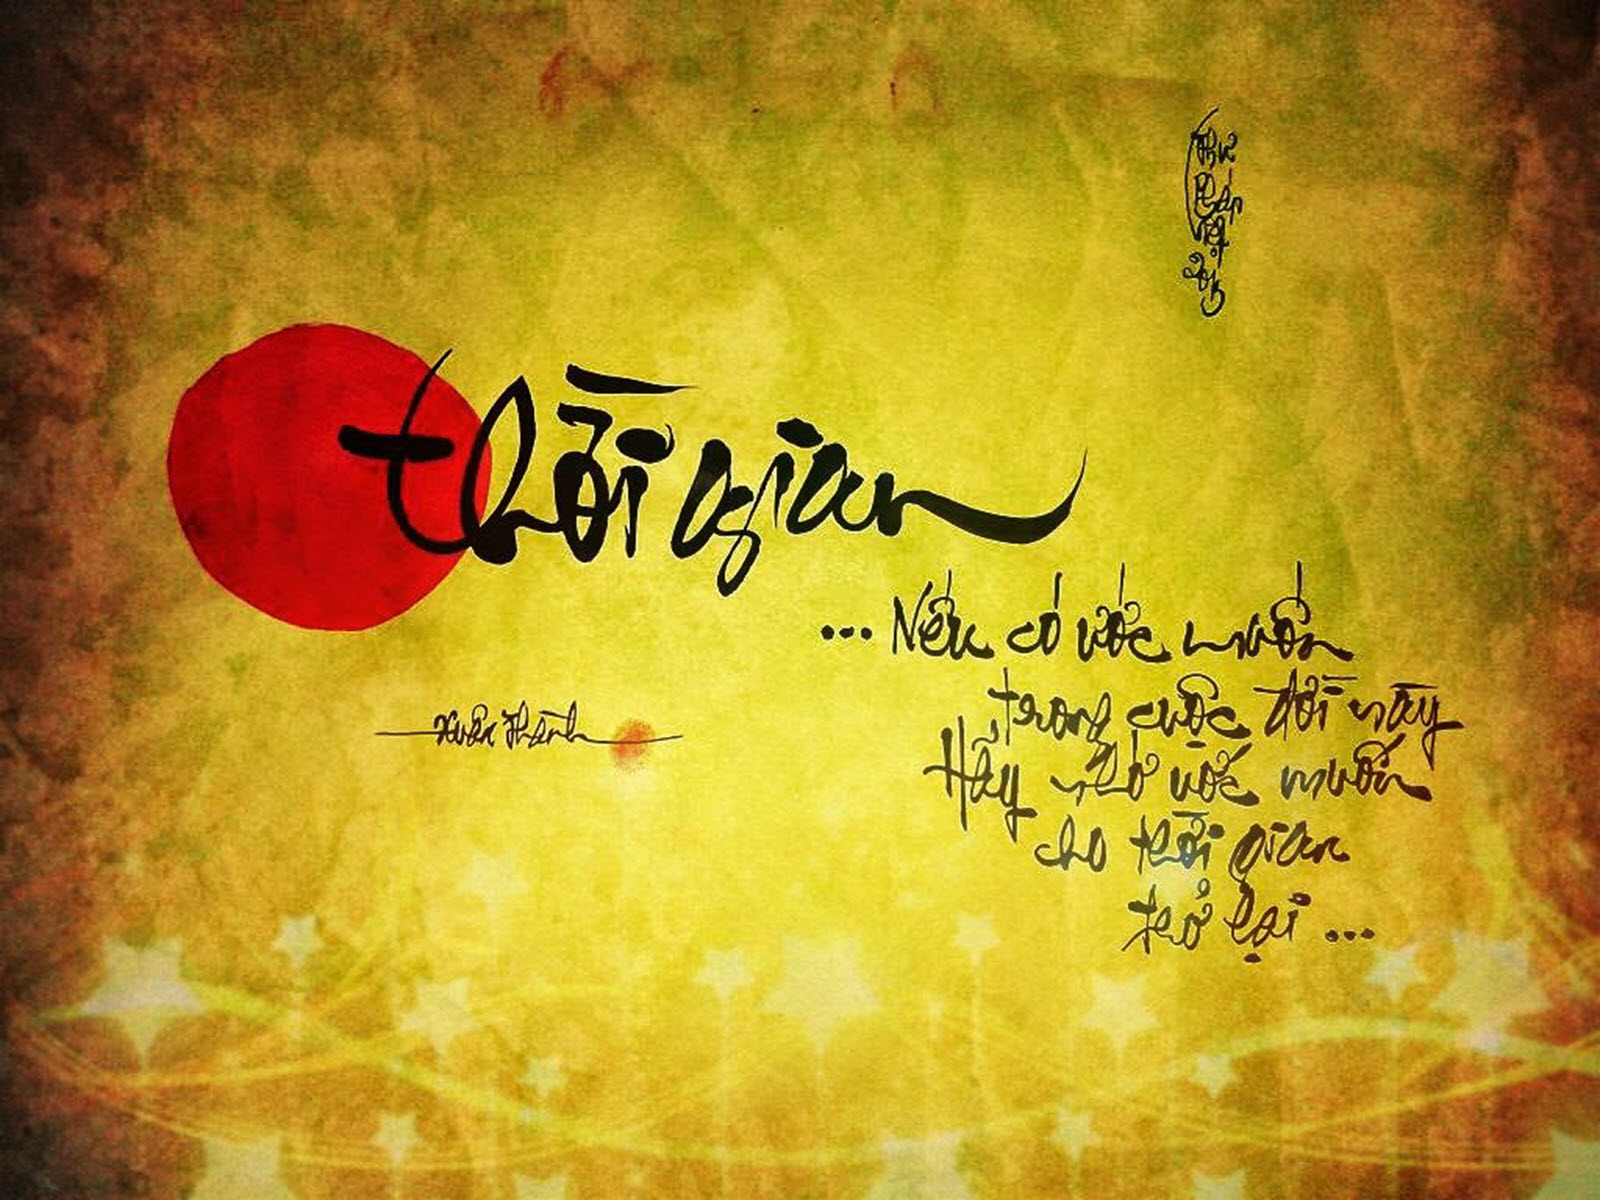 Thư
Pháp
Việt
thời gian
... Nếu có ước muốn
trong cuộc đời này
Hãy nhớ ước muốn
cho thời gian
trở lại ...
Xuân Thành